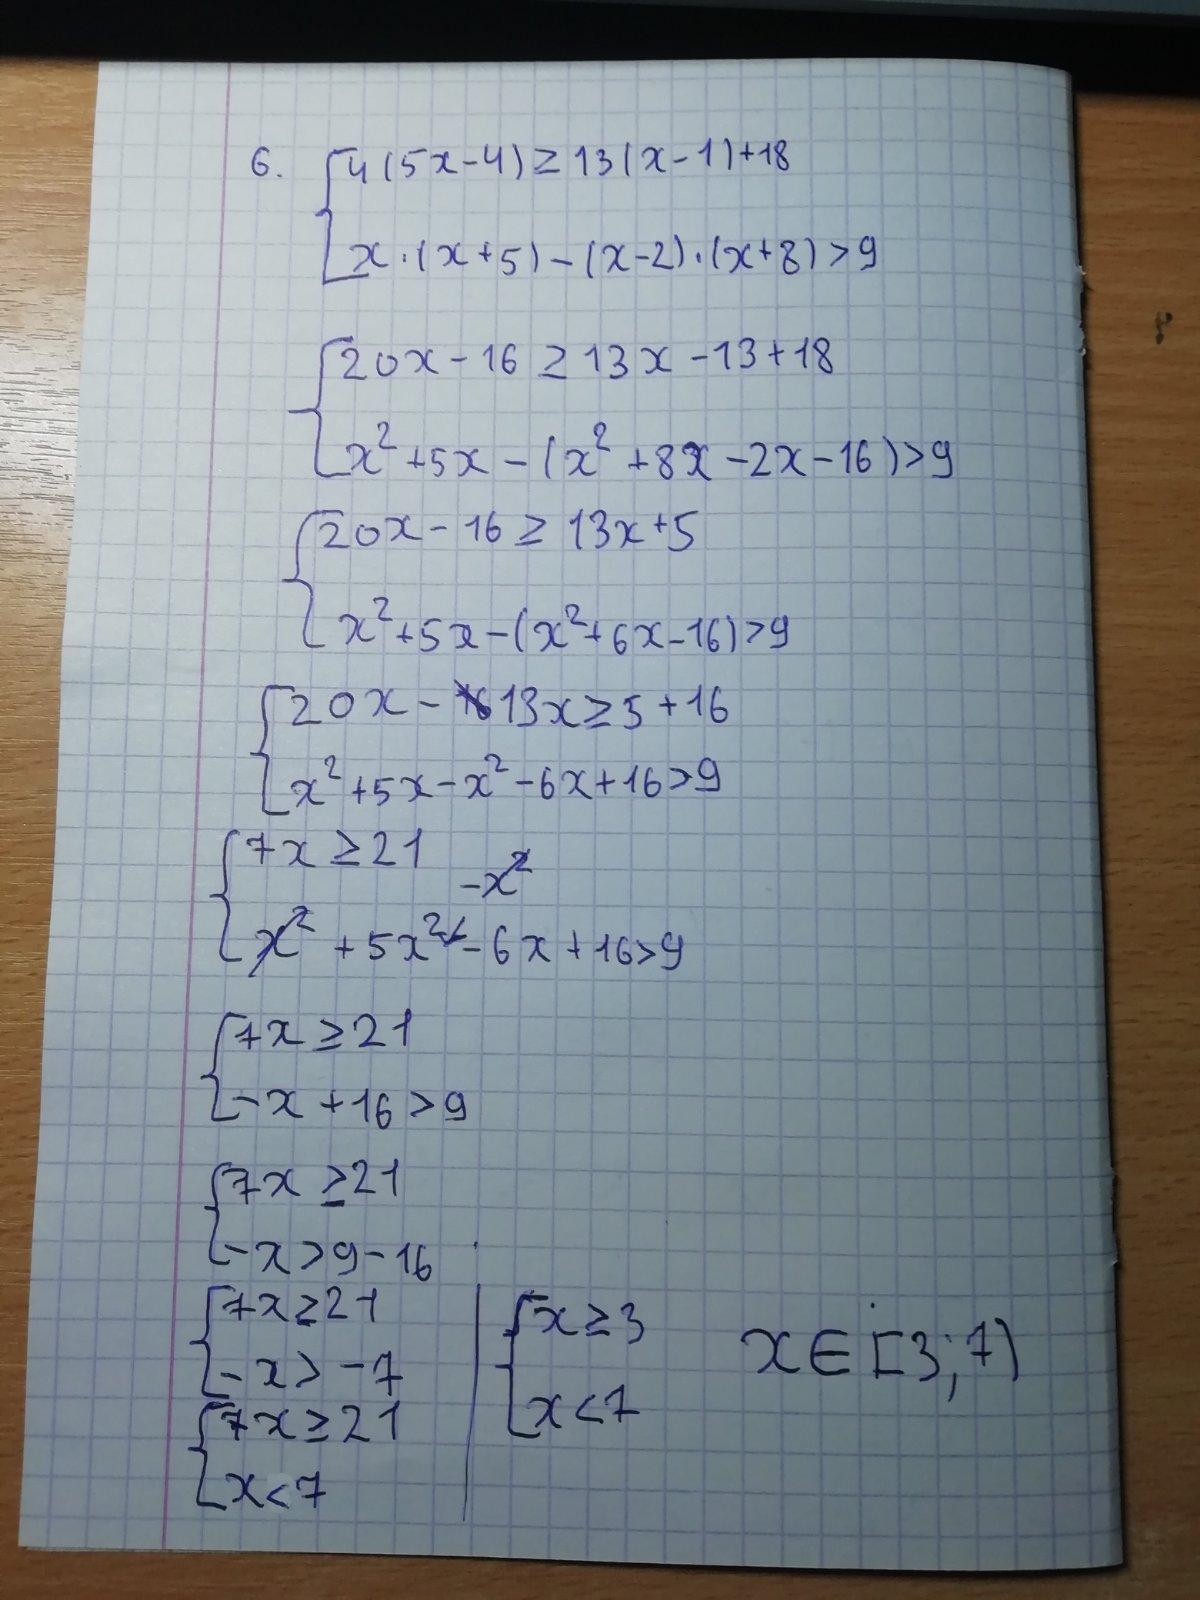 6. { 4(5x-4) ≥ 13(x-1)+18
x·(x+5)-(x-2)·(x+8)>9
{ 20x-16 ≥ 13x-13+18
x²+5x-(x²+8x-2x-16)>9
{ 20x-16 ≥ 13x+5
x²+5x-(x²+6x-16)>9
{ 20x-13x ≥ 5+16
x²+5x-x²-6x+16>9
{ 7x ≥ 21
-x²
x²+5x²-6x+16>9
{ 7x ≥ 21
-x+16>9
{ 7x ≥ 21
-x>9-16
{ 7x ≥ 21
-x>-7
{ 7x ≥ 21
x<7
{ x ≥ 3
x<7
x∈[3;7)